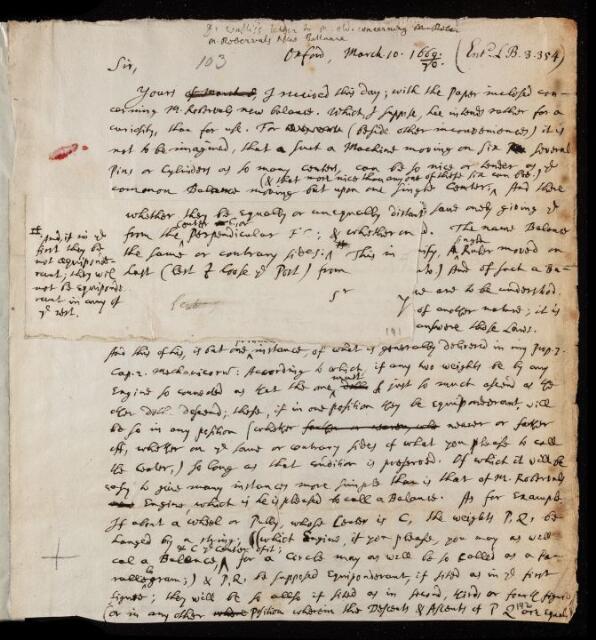 Dr Wallis's letter to Mr Old. concerning Mr Rober
Mr Robervals New Ballance
103
Oxford, March 10. 1669/70. (Entd. L.B. 3. 354)
Sir,
Yours I received this day; with the Paper inclosed con-
cerning Mr. Robervals new balance. Which, I suppose, hee intends rather for a
curiosity, than for use. For (beside other inconveniences) it is
not to be imagined, that such a Machine moving on six several
Pins or Cylinders as so many centers, can be so nice or tender as ye
(& that more nice than any one of those six can bee.)
common Balance moving but upon one single Center. And there
whether they be equally or unequally distant
from the Perpendicular & whether on
the same or contrary sides. This in
hast (lest I loose ye Post) from
Sr
And, if in ye
first they be
not equiponde-
rant; they will
not be equiponde
rant in any of
ye rest.
same onely giving ye
The name Balance
single
Ruler moved on
And of such a Ba-
are to be understood.
of another nature; it is
answere those Laws.
191
For this of his, is but one instance, of what is generally delivered in my Prop. 7.
Cap. 2. Mechanicorum: According to which, if any two weights be by any
Engine so connected as that the one must just so much ascend as the
other doth descend; these, if in one position they be equiponderant will
be so in any position (whether nearer or farther
off, whether on ye same or contrary sides of what you please to call
the Center,) so long as that condition is preserved. Of which it will be
easy to give many instances more simple than is that of Mr. Robervals
Engine, which hee is pleased to call a Balance. As for Example
If about a Wheel or Pully, whose Center is C, the weights P, Q, be
hanged by a string; (which Engine, if you please, you may as well
& C ye Center of it;
cal a Balance, for a Circle may as well be so called as a Pa-
rallelogram;) & P, Q. be supposed Equiponderant, if sited as in ye first
figure; they will be so allso if sited as in second, third or fourth figure
(or in any other Position wherein the Descents & Ascents of P Q are equal)
192